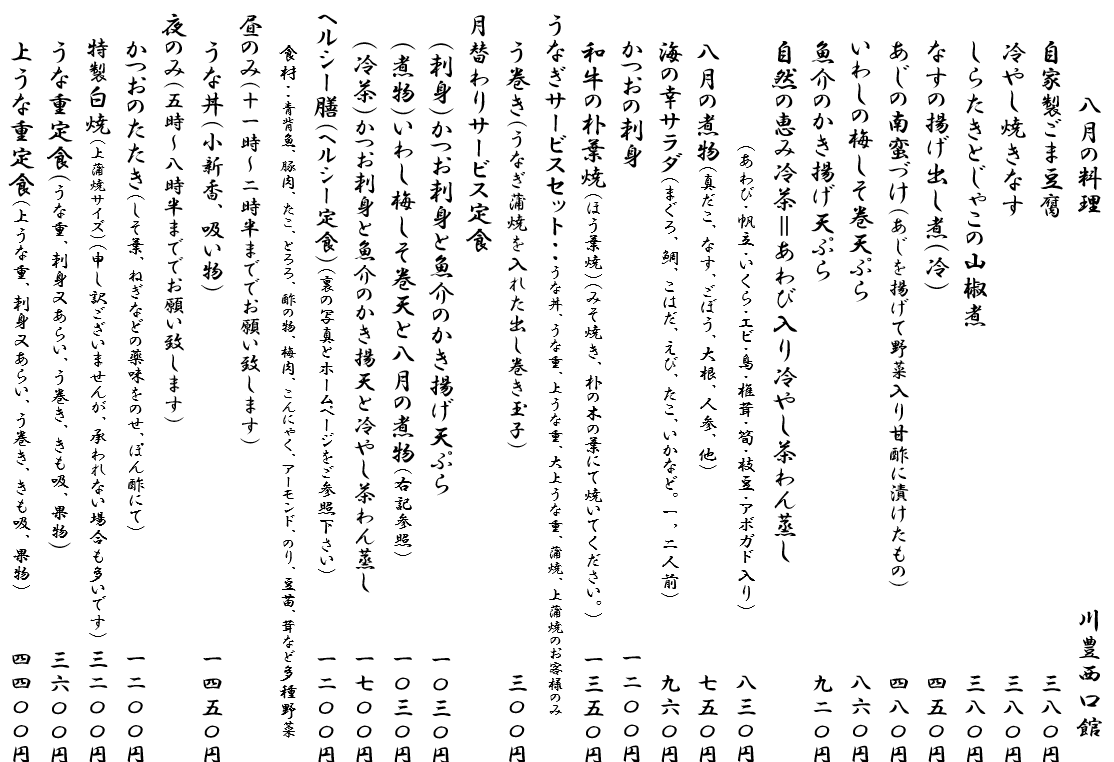 八月の料理　川豊西口館
自家製ごま豆腐　三八〇円
冷やし焼きなす　三八〇円
しらたきとじゃこの山椒煮　三八〇円
なすの揚げ出し煮(冷)　四五〇円
あじの南蛮づけ(あじを揚げて野菜入り甘酢に漬けたもの)　四八〇円
いわしの梅しそ巻天ぷら　八六〇円
魚介のかき揚げ天ぷら　九二〇円
自然の恵み冷茶＝あわび入り冷やし茶わん蒸し
(あわび・帆立・いくら・エビ・鳥・椎茸・筍・枝豆・アボガド入り)　八三〇円
八月の煮物(真だこ、なす、ごぼう、大根、人参、他)　七五〇円
海の幸サラダ(まぐろ、鯛、こはだ、えび、たこ、いかなど。一，二人前)　九六〇円
かつおの刺身　一二〇〇円
和牛の朴葉焼(ほう葉焼)(みそ焼き、朴の木の葉にて焼いてください。)　一三五〇円
うなぎサービスセット・・うな丼、うな重、上うな重、大上うな重、蒲焼、上蒲焼のお客様のみ
う巻き(うなぎ蒲焼を入れた出し巻き玉子)　三〇〇円
月替わりサービス定食
(刺身)かつお刺身と魚介のかき揚げ天ぷら　一〇三〇円
(煮物)いわし梅しそ巻天と八月の煮物(右記参照)　一〇三〇円
(冷茶)かつお刺身と魚介のかき揚天と冷やし茶わん蒸し　一七〇〇円
ヘルシー膳(ヘルシー定食)(裏の写真とホームページをご参照下さい)　一二〇〇円
食材・・青背魚、豚肉、たこ、とろろ、酢の物、梅肉、こんにゃく、アーモンド、のり、豆苗、茸など多種野菜
昼のみ(十一時～二時半まででお願い致します)
うな丼(小新香、吸い物)　一四五〇円
夜のみ(五時～八時半まででお願い致します)
かつおのたたき(しそ葉、ねぎなどの薬味をのせ、ぽん酢にて)　一二〇〇円
特製白焼(上蒲焼サイズ)(申し訳ございませんが、承われない場合も多いです)　三二〇〇円
うな重定食(うな重、刺身又あらい、う巻き、きも吸、果物)　三六〇〇円
上うな重定食(上うな重、刺身又あらい、う巻き、きも吸、果物)　四四〇〇円